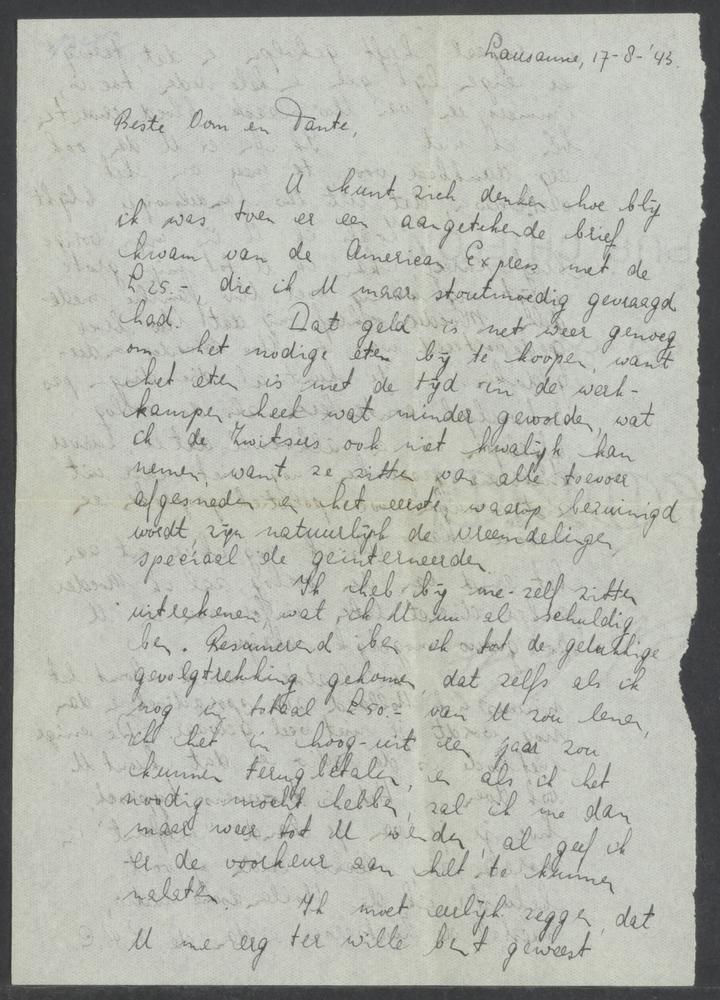 Lausanne, 17-8-'43.
Beste Oom en Tante,
U kunt zich denken hoe blij
ik was toen er een aangetekende brief
kwam van de American Express met de
£25.-, die ik U maar stoutmoedig gevraagd
had. Dat geld is net weer genoeg
om het nodige eten bij te koopen, want
het eten is met de tijd in de werk-
kampen heel wat minder geworden, wat
ik de Zwitsers ook niet kwalijk kan
nemen, want ze zitten van alle toevoer
afgesneden en het eerste waarop bezuinigd
wordt, zijn natuurlijk de vreemdelingen
speciaal de geïnterneerden.
Ik heb bij me-zelf zitten
uitrekenen, wat ik U nu al schuldig
ben. Resumerend ben ik tot de gelukkige
gevolgtrekking gekomen, dat zelfs als ik
nog in totaal £50.- van U zou lenen,
ik het in hoog-uit een jaar zou
kunnen terugbetalen, en als ik het
noodig mocht hebben, zal ik me dan
maar weer tot U wenden, al geef ik
er de voorkeur aan het te kunnen
nalaten. Ik moet eerlijk zeggen, dat
U me erg ter wille bent geweest